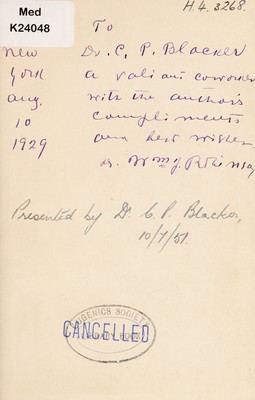 Med
K24048
H.4.3268.
To
New Dr. C. P. Blacker
York a valiant coworker
Aug. with the author's
10 compliments
1929 and best wishes
Dr. Wm J. Robinson
Presented by Dr. C. P. Blacker,
10/7/51.
EUGENICS SOCIETY
CANCELLED